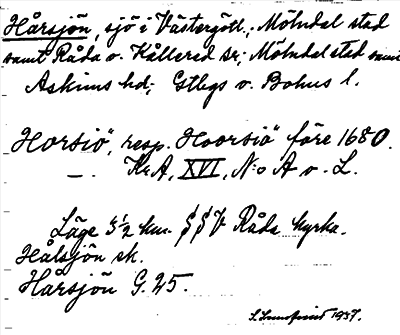 Hårsjön, sjö i Västergötl.; Mölndal stad
samt Råda o. Kållered sr; Mölndal stad samt
Askims hd; Gtbgs o. Bohus l.
"Horsiö", resp. "Hoorsiö" före 1680.
— . KrA, XVI, N:o A o. L.
Läge 3½ km SSV Råda kyrka.
Hålsjön sk.
Hårsjön G. 25.
1937.